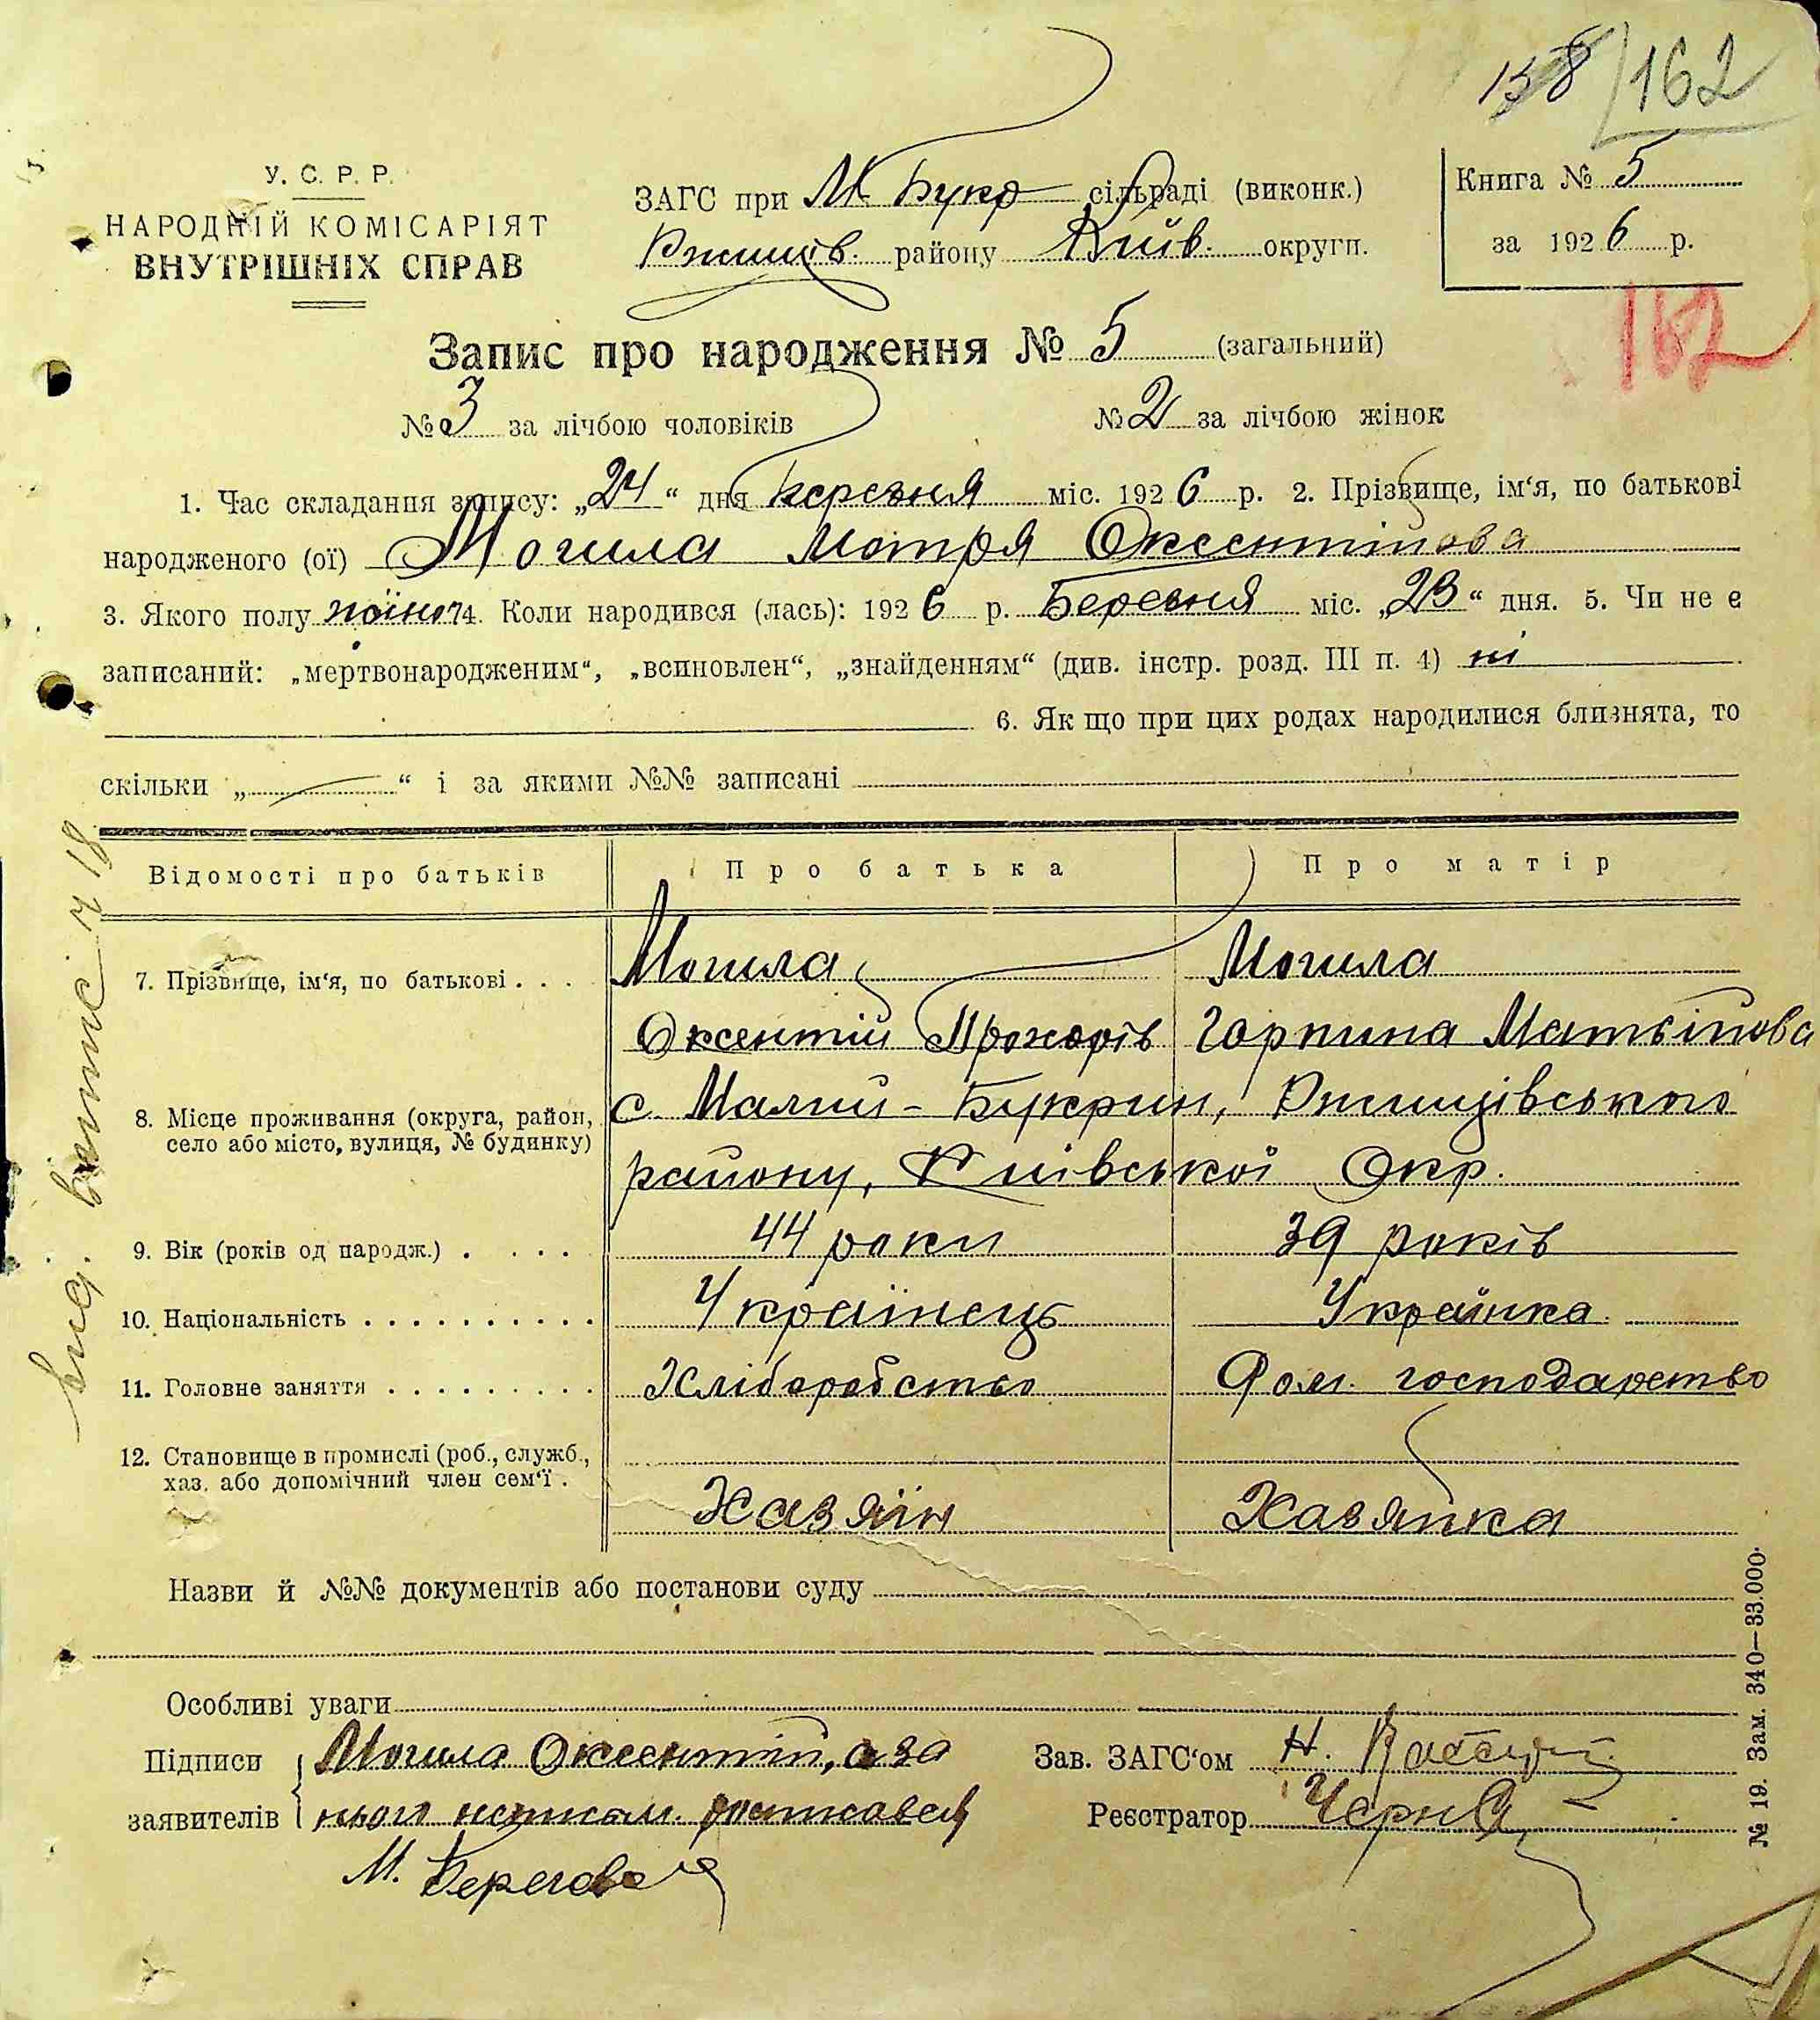 158 / 162
У. С. Р. Р.
НАРОДНІЙ КОМІСАРІЯТ
ВНУТРІШНІХ СПРАВ
ЗАГС при М. Букр сільраді (виконк.)
Ржищів. району Київ. округи.
Книга № 5
за 1926 р.
162
Запис про народження № 5 (загальний)
№ 3 за лічбою чоловіків № 2 за лічбою жінок
1. Час складання запису: „24“ дня березня міс. 1926 р. 2. Прізвище, ім‘я, по батькові
народженого (ої) Могила Мотря Оксентіїова
3. Якого полу 4. Коли народився (лась): 1926 р. Березня міс. „23“ дня. 5. Чи не є
записаний: „мертвонародженим“, „всиновлен“, „знайденням“ (див. інстр. розд. III п. 4) ні
6. Як що при цих родах народилися близнята, то
скільки „ “ і за якими №№ записані
Відомості про батьків Про батька Про матір
7. Прізвище, ім‘я, по батькові . . . Могила Могила
Оксентій Прохорів Горпина Матвіїова
8. Місце проживання (округа, район, с. Малий-Букрин, Ржищівського
село або місто, вулиця, № будинку) району, Київської Окр.
9. Вік (років од народж.) . . . . 44 роки 39 років
10. Національність . . . . . . . . . . Українець Українка.
11. Головне заняття . . . . . . . . . Хліборобство Дом. господарство
12. Становище в промислі (роб., служб.,
хаз. або допомічний член сем‘ї . Хазяїн Хазяйка
Назви й №№ документів або постанови суду
Особливі уваги
Підписи Могила Оксентій, а за Зав. ЗАГС‘ом Н.
заявителів нього неписьм. розписався Реєстратор Черн
М. Берегова
вид. випис ч 18
№ 19. Зам. 340—33.000.